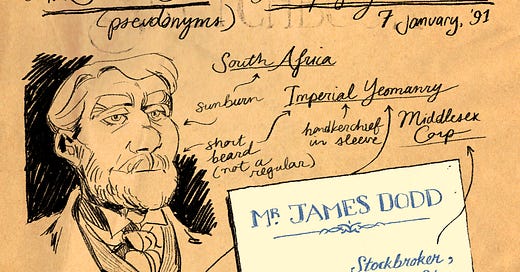 (pseudonyms)
7 January, '91
South Africa
sunburn
Imperial Yeomanry
short
beard
(not a
regular)
handkerchief
in sleeve
Middlesex
Corp
MR JAMES DODD
Stockbroker,